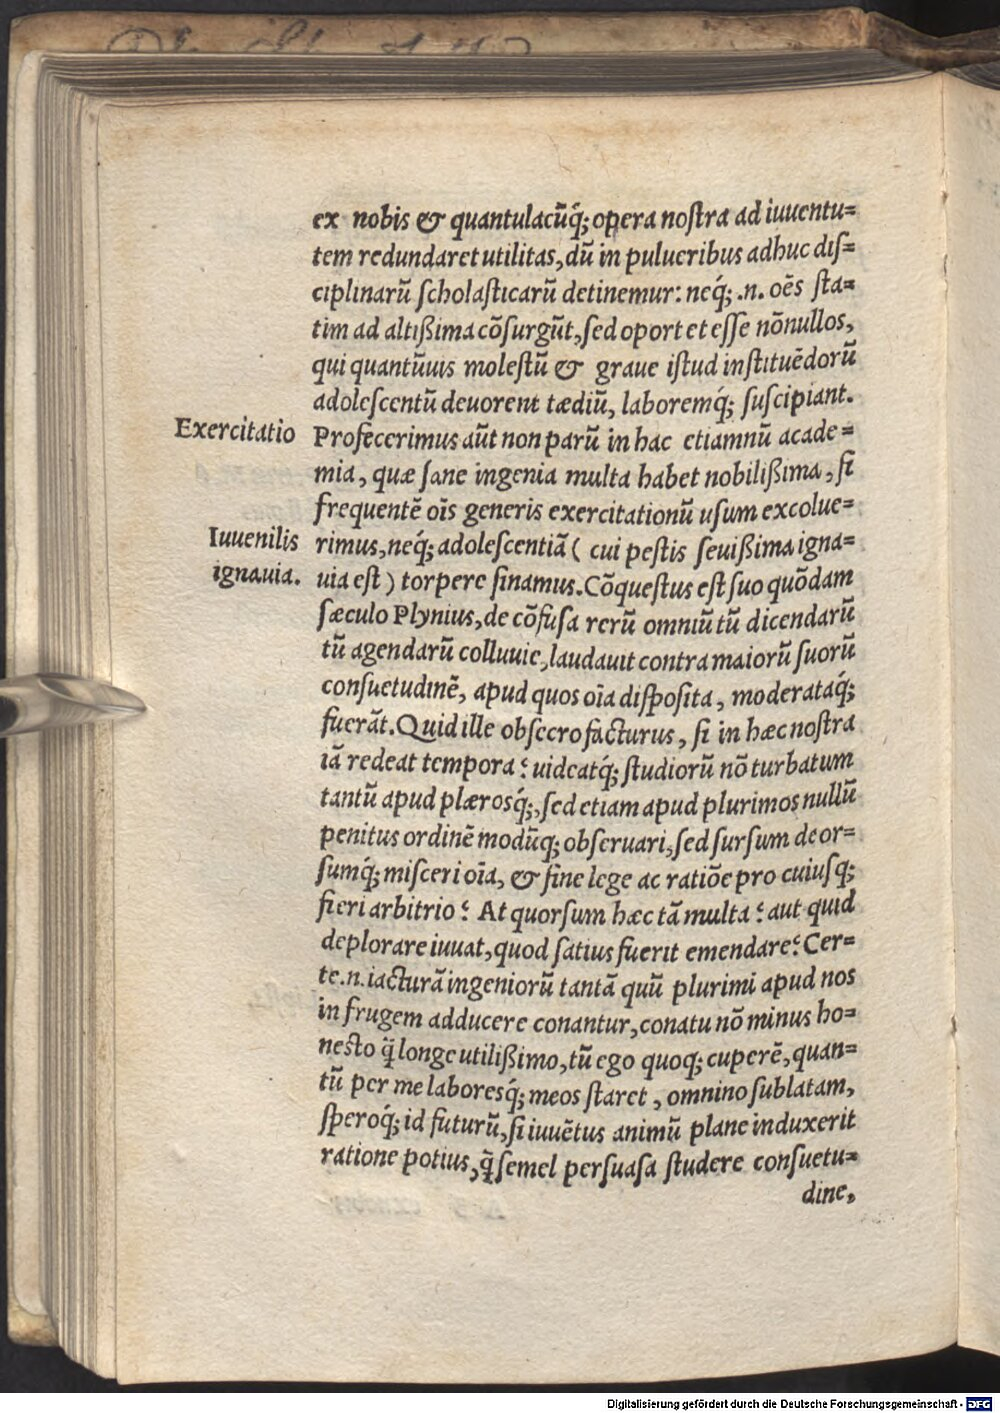 ex nobis & quantulacũq́; opera nostra ad iuuentu=
tem redundaret utilitas, dũ in pulueribus adhuc dis=
ciplinarũ scholasticarũ detinemur: neq́; .n. oẽs sta=
tim ad altißima cõsurgũt, sed oportet esse nõnullos,
qui quantũuis molestũ & graue istud instituẽdorũ
adolescentũ deuorent tædiũ, laboremq́; suscipiant.
Exercitatio
Profecerimus aũt non parũ in hac etiamnũ acade=
mia, quæ sane ingenia multa habet nobilißima, si
frequentẽ oĩs generis exercitationũ usum excolue=
Iuuenilis
rimus, neq́; adolescentiã ( cui pestis seuißima igna=
ignauia.
uia est ) torpere sinamus. Cõquestus est suo quõdam
sæculo Plynius, de cõfusa rerũ omniũ tũ dicendarũ
tũ agendarũ colluuie, laudauit contra maiorũ suorũ
consuetudinẽ, apud quos oĩa disposita, moderataq́;
fuerãt. Quid ille obsecro facturus, si in hæc nostra
iã redeat tempora? uideatq́; studiorũ nõ turbatum
tantũ apud plærosq́;, sed etiam apud plurimos nullũ
penitus ordinẽ modũq; obseruari, sed sursum deor=
sumq́; misceri oĩa, & sine lege ac ratiõe pro cuiusq;
fieri arbitrio? At quorsum hæc tã multa? aut quid
deplorare iuuat, quod satius fuerit emendare? Cer=
te .n. iacturã ingeniorũ tantã quũ plurimi apud nos
in frugem adducere conantur, conatu nõ minus ho=
nesto q̃ longe utilißimo, tũ ego quoq; cuperẽ, quan=
tũ per me laboresq́; meos staret, omnino sublatam,
speroq́; id futurũ, si iuuẽtus animũ plane induxerit
ratione potius, q̃ semel persuasa studere consuetu=
dine,
Digitalisierung gefördert durch die Deutsche Forschungsgemeinschaft - DFG